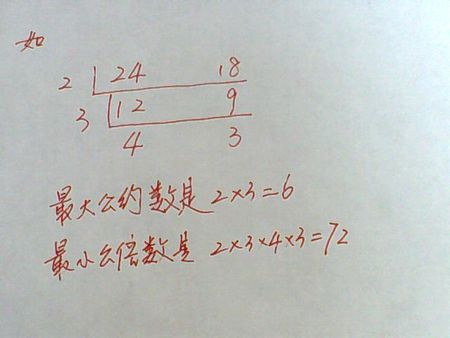 如
2 24 18
3 12 9
4 3
最大公约数是 2×3=6
最小公倍数是 2×3×4×3=72